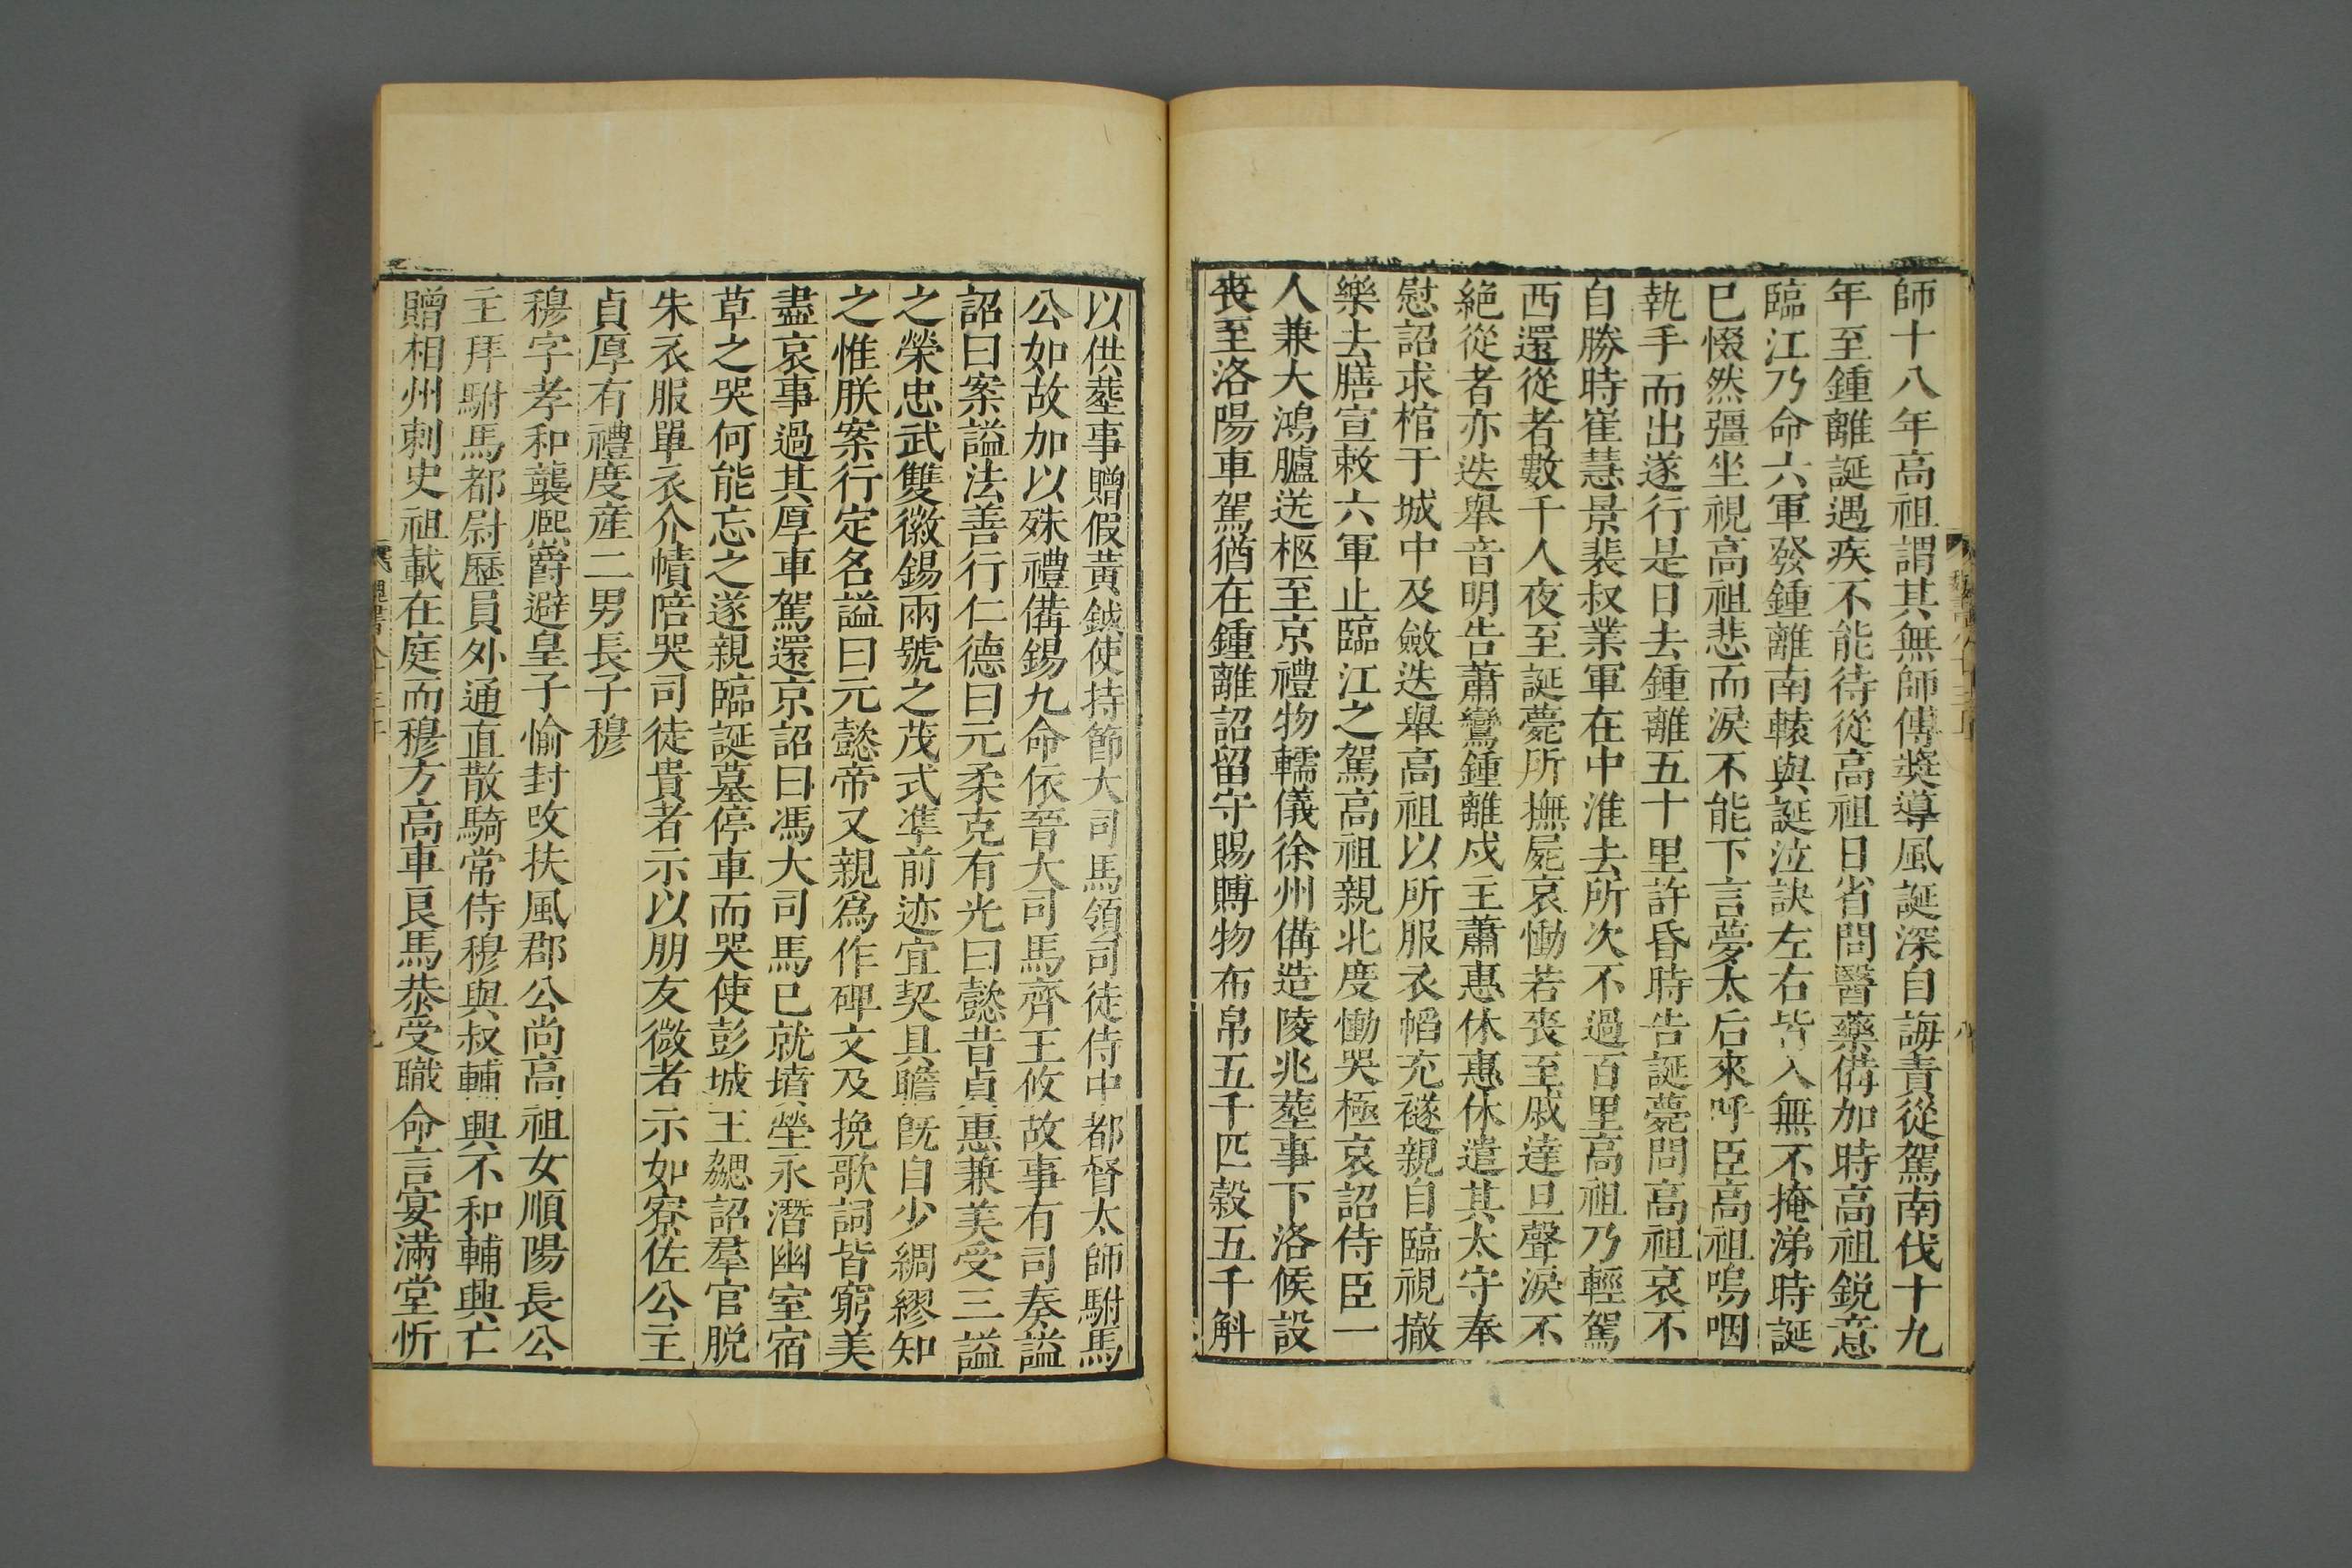 師十八年高祖謂其無師傅奬導風誕深自誨責從駕南伐十九
年至鍾離誕遇疾不能侍從高祖日省問醫藥備加時高祖鋭意
臨江乃命六軍發鍾離南轅與誕泣訣左右皆入無不掩涕時誕
已惙然彊坐視高祖悲而淚不能下言夢太后來呼臣高祖嗚咽
執手而出遂行是日去鍾離五十里許昏時告誕薨問高祖哀不
自勝時崔慧景裴叔業軍在中淮去所次不過百里高祖乃輕駕
西還從者數千人夜至誕薨所撫屍哀慟若喪至戚達旦聲淚不
絕從者亦迭舉音明告蕭鸞鍾離戍主蕭惠休惠休遣其太守奉
慰詔求棺于城中及斂迭舉高祖以所服衣㡌充襚親自臨視撤
樂去膳宣敕六軍止臨江之駕高祖親北度慟哭極哀詔侍臣一
人兼大鴻臚送柩至京禮物轜儀徐州備造陵兆葬事下洛候設
喪至洛陽車駕猶在鍾離詔留守賜賻物布帛五千匹穀五千斛
以供葬事贈假黃鉞使持節大司馬領司徒侍中都督太師駙馬
公如故加以殊禮備錫九命依晉大司馬齊王攸故事有司奏謚
詔曰案謚法善行仁德曰元柔克有光曰懿昔貞惠兼美受三謚
之榮忠武雙徽錫兩號之茂式準前迹宜契具瞻旣自少綢繆知
之惟朕案行定名謚曰元懿帝又親爲作碑文及挽歌詞皆窮美
盡哀事過其厚車駕還京詔曰馮大司馬已就墳塋永潛幽室宿
草之哭何能忘之遂親臨誕墓停車而哭使彭城王勰詔羣官脱
朱衣服單衣介幘陪哭司徒貴者示以朋友微者示如寮佐公主
貞厚有禮度産二男長子穆
穆字孝和襲熙爵避皇子愉封改扶風郡公尚高祖女順陽長公
主拜駙馬都尉歷員外通直散騎常侍穆與叔輔興不和輔興亡
贈相州刺史祖載在庭而穆方高車良馬恭受職命言宴滿堂忻